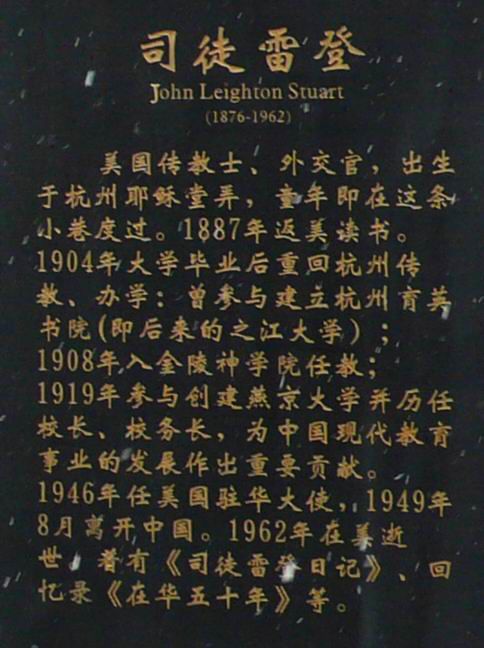 司徒雷登
John Leighton Stuart
(1876-1962)
美国传教士、外交官，出生
于杭州耶稣堂弄，童年即在这条
小巷度过。1887年返美读书。
1904年大学毕业后重回杭州传
教、办学；曾参与建立杭州育英
书院(即后来的之江大学)；
1908年入金陵神学院任教；
1919年参与创建燕京大学并历任
校长、校务长，为中国现代教育
事业的发展作出重要贡献。
1946年任美国驻华大使，1949年
8月离开中国。1962年在美逝
世，著有《司徒雷登日记》、回
忆录《在华五十年》等。